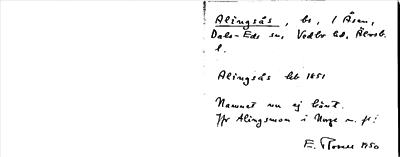 Alingsås, bs, / Åsen,
Dals-Eds sn, Vedbo hd, Älvsb.
l.
Alingsås hb 1851
Namnet nu ej känt.
Jfr Alingsmon i Norge n. f!
E. 1950